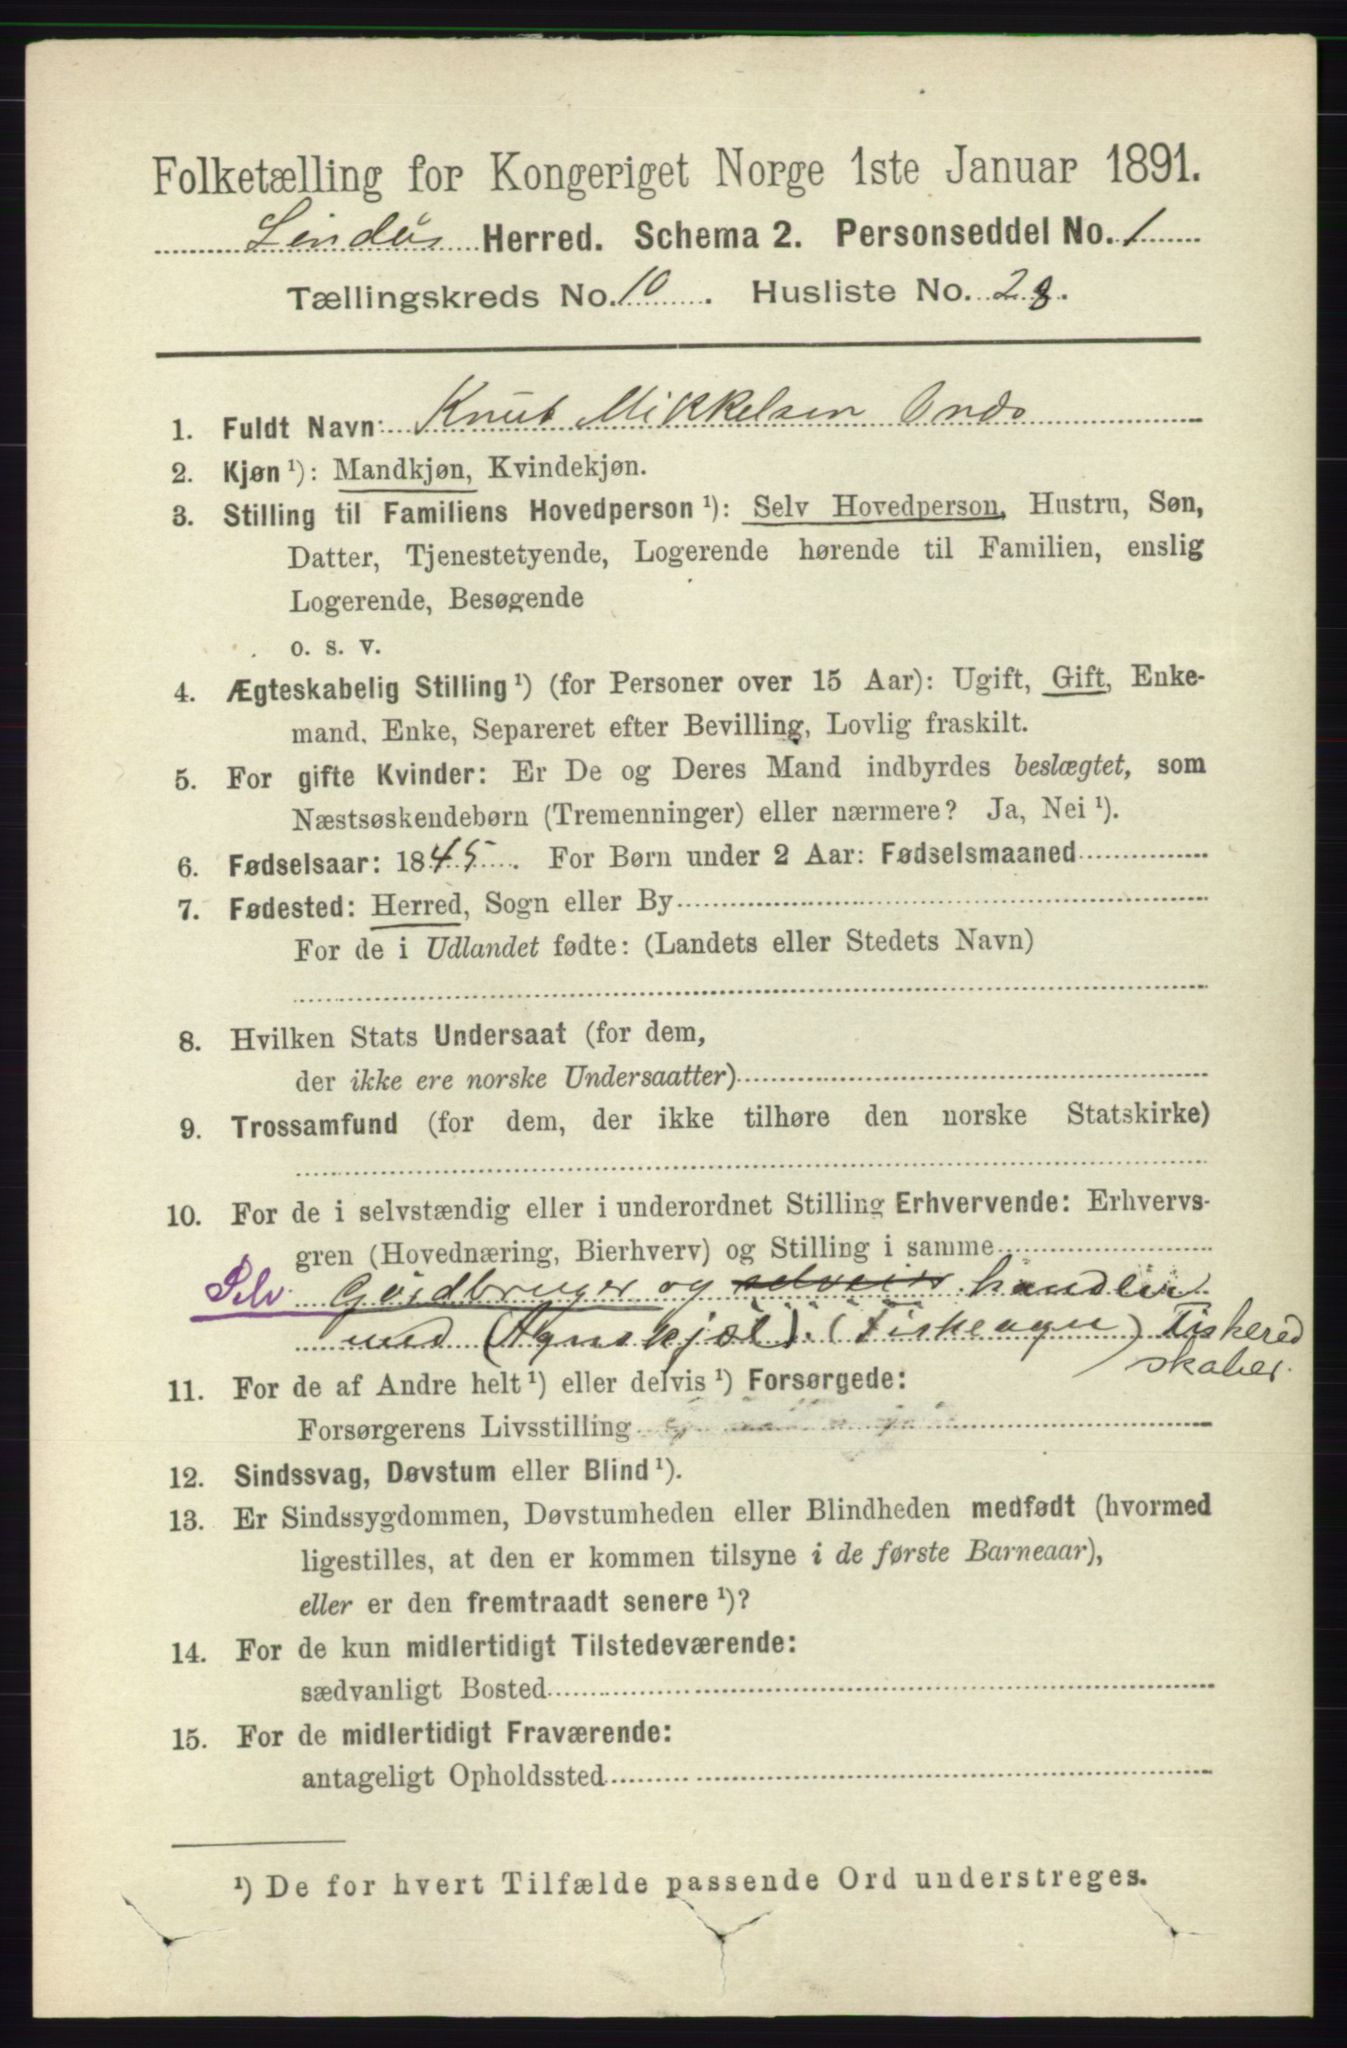 Folketælling for Kongeriget Norge 1ste Januar 1891.
Lindås Herred. Schema 2. Personseddel No. 1
Tællingskreds No. 10. Husliste No. 28.
1. Fuldt Navn: Knut Mikkelsen Ondo
2. Kjøn ¹): Mandkjøn, Kvindekjøn.
3. Stilling til Familiens Hovedperson ¹): Selv Hovedperson, Hustru, Søn,
Datter, Tjenestetyende, Logerende hørende til Familien, enslig
Logerende, Besøgende
o. s. v.
4. Ægteskabelig Stilling ¹) (for Personer over 15 Aar): Ugift, Gift, Enke-
mand, Enke, Separeret efter Bevilling, Lovlig fraskilt.
5. For gifte Kvinder: Er De og Deres Mand indbyrdes beslægtet, som
Næstsøskendebørn (Tremenninger) eller nærmere? Ja, Nei ¹).
6. Fødselsaar: 1845. For Børn under 2 Aar: Fødselsmaaned
7. Fødested: Herred, Sogn eller By
For de i Udlandet fødte: (Landets eller Stedets Navn)
8. Hvilken Stats Undersaat (for dem,
der ikke ere norske Undersaatter)
9. Trossamfund (for dem, der ikke tilhøre den norske Statskirke)
10. For de i selvstændig eller i underordnet Stilling Erhvervende: Erhvervs-
gren (Hovednæring, Bierhverv) og Stilling i samme
Selv Gårdbruger og selveier handler
med (Agnskjæl). (Fiskeagn) Fiskered
skaber.
11. For de af Andre helt ¹) eller delvis ¹) Forsørgede:
Forsørgerens Livsstilling
12. Sindssvag, Døvstum eller Blind ¹).
13. Er Sindssygdommen, Døvstumheden eller Blindheden medfødt (hvormed
ligestilles, at den er kommen tilsyne i de første Barneaar),
eller er den fremtraadt senere ¹)?
14. For de kun midlertidigt Tilstedeværende:
sædvanligt Bosted
15. For de midlertidigt Fraværende:
antageligt Opholdssted
¹) De for hvert Tilfælde passende Ord understreges.